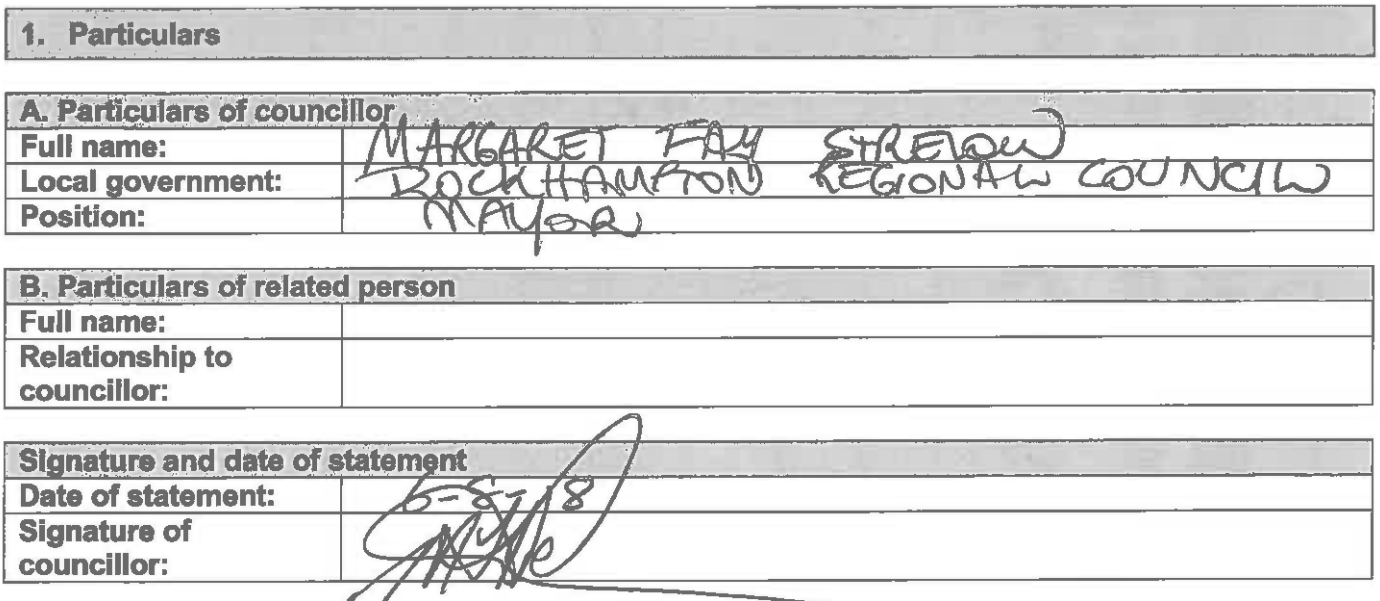 1. Particulars
A. Particulars of councillor
Full name: MARGARET FAY STRELOW
Local government: ROCKHAMPTON REGIONAL COUNCIL
Position: MAYOR
B. Particulars of related person
Full name:
Relationship to
councillor:
Signature and date of statement
Date of statement:
Signature of
councillor: